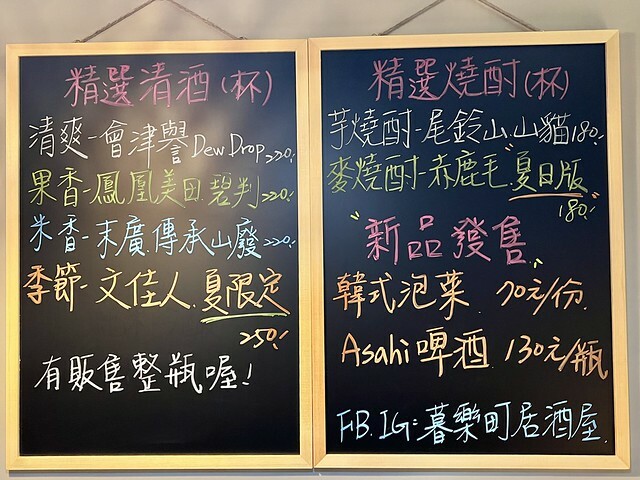 精選清酒(杯)
清爽-會津譽 Dew Drop 220.-
果香-鳳凰美田.碧判 220.-
米香-末廣.傳承山廢 220.-
季節-文佳人.夏限定
250.-
有販售整瓶喔!
精選燒酎(杯)
芋燒酎-尾鈴山.山貓 180.-
麥燒酎-赤鹿毛"夏日版"
180.-
"新品發售"
韓式泡菜 70元/份.
Asahi啤酒 130元/瓶
FB.IG:暮樂町居酒屋.